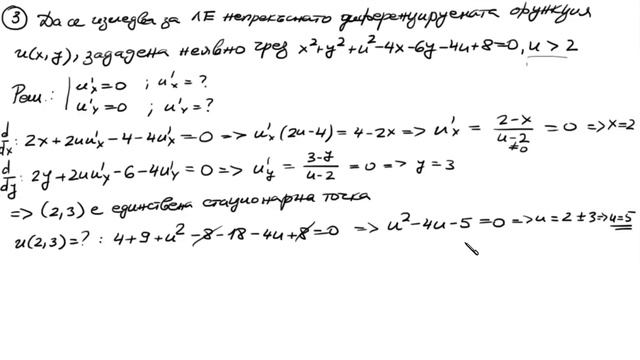 ③ Да се изследва за ЛЕ непрекъснато диференцируемата функция
u(x,y), зададена неявно чрез x²+y²+u²-4x-6y-4u+8=0, u>2
Реш.: | u'ₓ=0 ; u'ₓ=?
| u'ᵧ=0 ; u'ᵧ=?
d/dx: 2x+2uu'ₓ-4-4u'ₓ=0 => u'ₓ(2u-4)=4-2x => u'ₓ = (2-x)/(u-2) = 0 => x=2
≠0
d/dy: 2y+2uu'ᵧ-6-4u'ᵧ=0 => u'ᵧ = (3-y)/(u-2) = 0 => y=3
=> (2,3) е единствена стационарна точка
u(2,3)=? : 4+9+u²-8-18-4u+8=0 => u²-4u-5=0 => u=2±3 => u=5